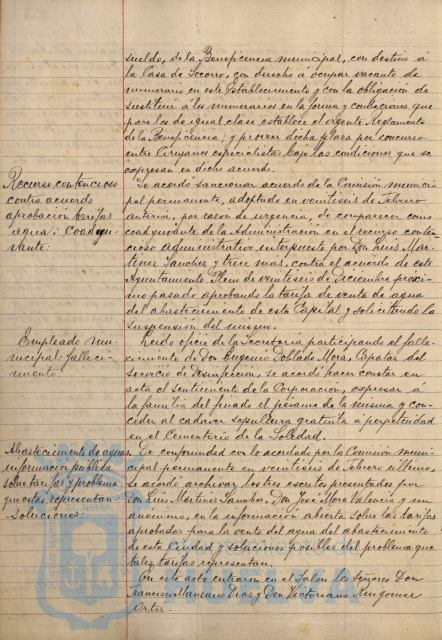 sueldo, de la Beneficencia municipal, con destino á
la Casa de Socorro, con derecho á ocupar vacante de
numerario en este Establecimiento y con la obligación de
sustituir á los numerarios en la forma y condiciones que
para los de igual clase establece el vigente Reglamento
de la Beneficencia; y proveer dicha plaza por concurso
entre Cirujanos especialistas bajo las condiciones que se
expresan en dicho acuerdo.
Recurso contencioso
contra acuerdo
aprobación tarifas
agua: Coadyu-
vante:
Se acordó sancionar acuerdo de la Comisión munici-
pal permanente, adoptado en veintiseis de Febrero
anterior, por razon de urgencia, de comparecer como
coadyuvante de la Administración en el recurso conten-
cioso administrativo interpuesto por Don Luis Mar-
tinez Sanchez y trece más, contra el acuerdo de este
Ayuntamiento Pleno de veintiseis de Diciembre próxi-
mo pasado aprobando la tarifa de venta de agua
del abastecimiento de esta Capital y solicitando la
suspensión del mismo.
Empleado mu-
nicipal: falleci-
miento:
Leido oficio de la Secretaría participando el falle-
cimiento de Don Eugenio Doblado Mora, Capataz del
servicio de desinfección, se acordó hacer constar en
acta el sentimiento de la Corporación, expresar á
la familia del finado el pésame de la misma y con-
ceder al cadaver sepultura gratuita á perpetuidad
en el Cementerio de la Soledad.
Abastecimiento de aguas
información pública
sobre tarifas y problema
que estas representan:
soluciones:
De conformidad con lo acordado por la Comisión muni-
cipal permanente en veintiseis de Febrero último,
se acordó archivar los tres escritos presentados por
Don Luis Martinez Sanchez, Don José Mora Valencia y un
anónimo, en la información abierta sobre las tarifas
aprobadas para la venta del agua del abastecimiento
de esta Ciudad y soluciones posibles del problema que
tales tarifas representan.
En este acto entraron en el Salon los Señores Don
Francisco Manzano Diaz y Don Victoriano
Ortiz.